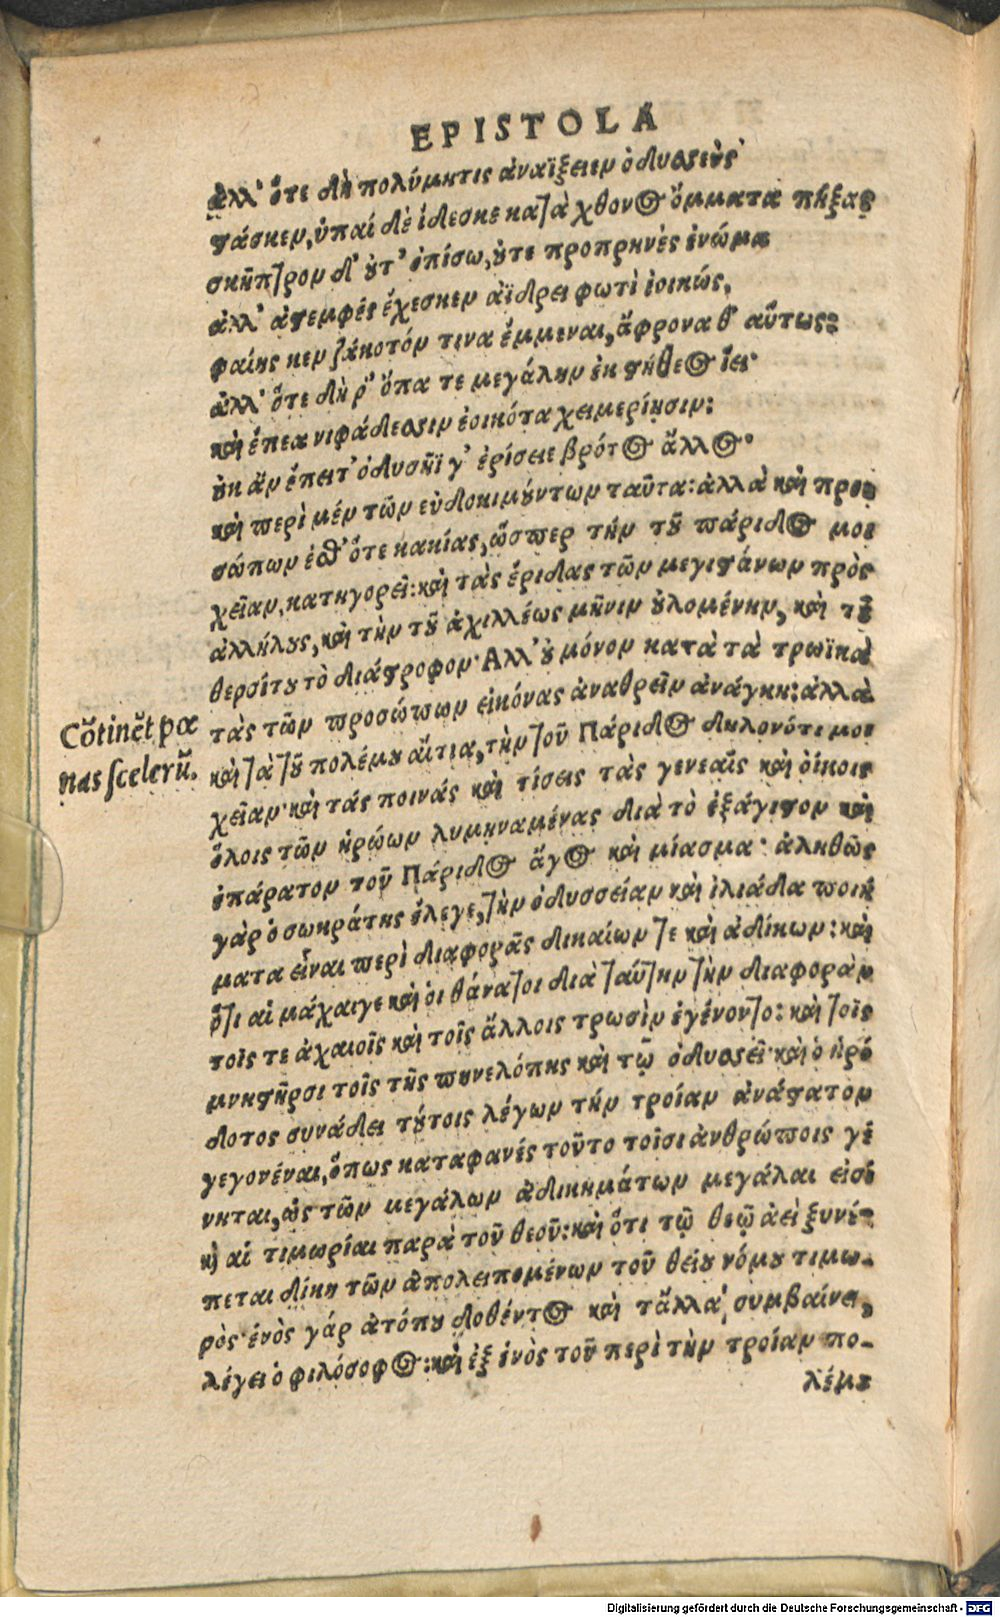 EPISTOLA
ἀλλ' ὅτε δὴ πολύμητις ἀναΐξειεν ὀδυσσεὺς
στάσκεν, ὑπαὶ δὲ ἴδεσκε κατὰ χθονὸς ὄμματα πήξας
σκῆπτρον δ' οὔτ' ὀπίσω, οὔτε προπρηνὲς ἐνώμα
ἀλλ' ἀστεμφὲς ἔχεσκεν ἀΐδρει φωτὶ ἐοικώς,
φαίης κεν ζάκοτόν τινα ἔμμεναι, ἄφρονα θ' αὔτως:
ἀλλ' ὅτε δὴ ῥ' ὄπα τε μεγάλην ἐκ στήθεος ἵει·
καὶ ἔπεα νιφάδεσσιν ἐοικότα χειμερίησιν:
οὐκ ἂν ἔπειτ' ὀδυσῆϊ γ' ἐρίσειε βρότος ἄλλος·
καὶ περὶ μὲν τῶν εὐδοκιμούντων ταῦτα: ἀλλὰ καὶ προσ
σώπων ἐσθ' ὅτε κακίας, ὥσπερ τὴν τοῦ πάριδος μοι
χεῖαν, κατηγορεῖ: καὶ τὰς ἔριδας τῶν μεγιστάνων πρὸς
ἀλλήλους, καὶ τὴν τοῦ ἀχιλλέως μῆνιν οὐλομένην, καὶ τοῦ
θερσίτου τὸ διάστροφον· Ἀλλ' οὐ μόνον κατὰ τὰ τρωϊκὰ
τὰς τῶν προσώπων εἰκόνας ἀναθρεῖν ἀνάγκη: ἀλλὰ
Cõtinẽt pœ
καὶ τὰ τοῦ πολέμου αἴτια, τὴν τοῦ Πάριδος δηλονότι μοι
nas scelerũ.
χεῖαν· καὶ τάς ποινάς καὶ τίσεις τὰς γενεαῖς καὶ οἴκοις
ὅλοις τῶν ἡρώων λυμηναμένας διὰ τὸ ἐξάγιστον καὶ
ἐπάρατον τοῦ Πάριδος ἄγος καὶ μίασμα· ἀληθῶς
γὰρ ὁ σωκράτης ἔλεγε, τὴν ὀδυσσείαν καὶ ἰλιάδα ποιή
ματα εἶναι περὶ διαφορᾶς δικαίων τε καὶ ἀδίκων: καὶ
ὅτι αἱ μάχαιγε καὶ οἱ θάνατοι διὰ ταύτην τὴν διαφορὰν
τοῖς τε ἀχαιοῖς καὶ τοῖς ἄλλοις τρωσὶν ἐγένοντο: καὶ τοῖς
μνηστῆρσι τοῖς τῆς πηνελόπης καὶ τῷ ὀδυσσεῖ· καὶ ὁ ἡρό
δοτος συνάδει τούτοις λέγων τὴν τροίαν ἀνάστατον
γεγονέναι, ὅπως καταφανές τοῦτο τοῖσι ἀνθρώποις γέ
νηται, ὡς τῶν μεγάλων ἀδικημάτων μεγάλαι εἰσὶ
καὶ αἱ τιμωρίαι παρὰ τοῦ θεοῦ: καὶ ὅτι τῷ θεῷ ἀεὶ ξυνέ-
πεται δίκη τῶν ἀπολειπομένων τοῦ θείου νόμου τιμω-
ρός· ἑνὸς γάρ ἀτόπου δοθέντος καὶ τἄλλα, συμβαίνει,
λέγει ὁ φιλόσοφος: καὶ ἐξ ἑνὸς τοῦ περὶ τὴν τροίαν πο-
λέμου
Digitalisierung gefördert durch die Deutsche Forschungsgemeinschaft - DFG